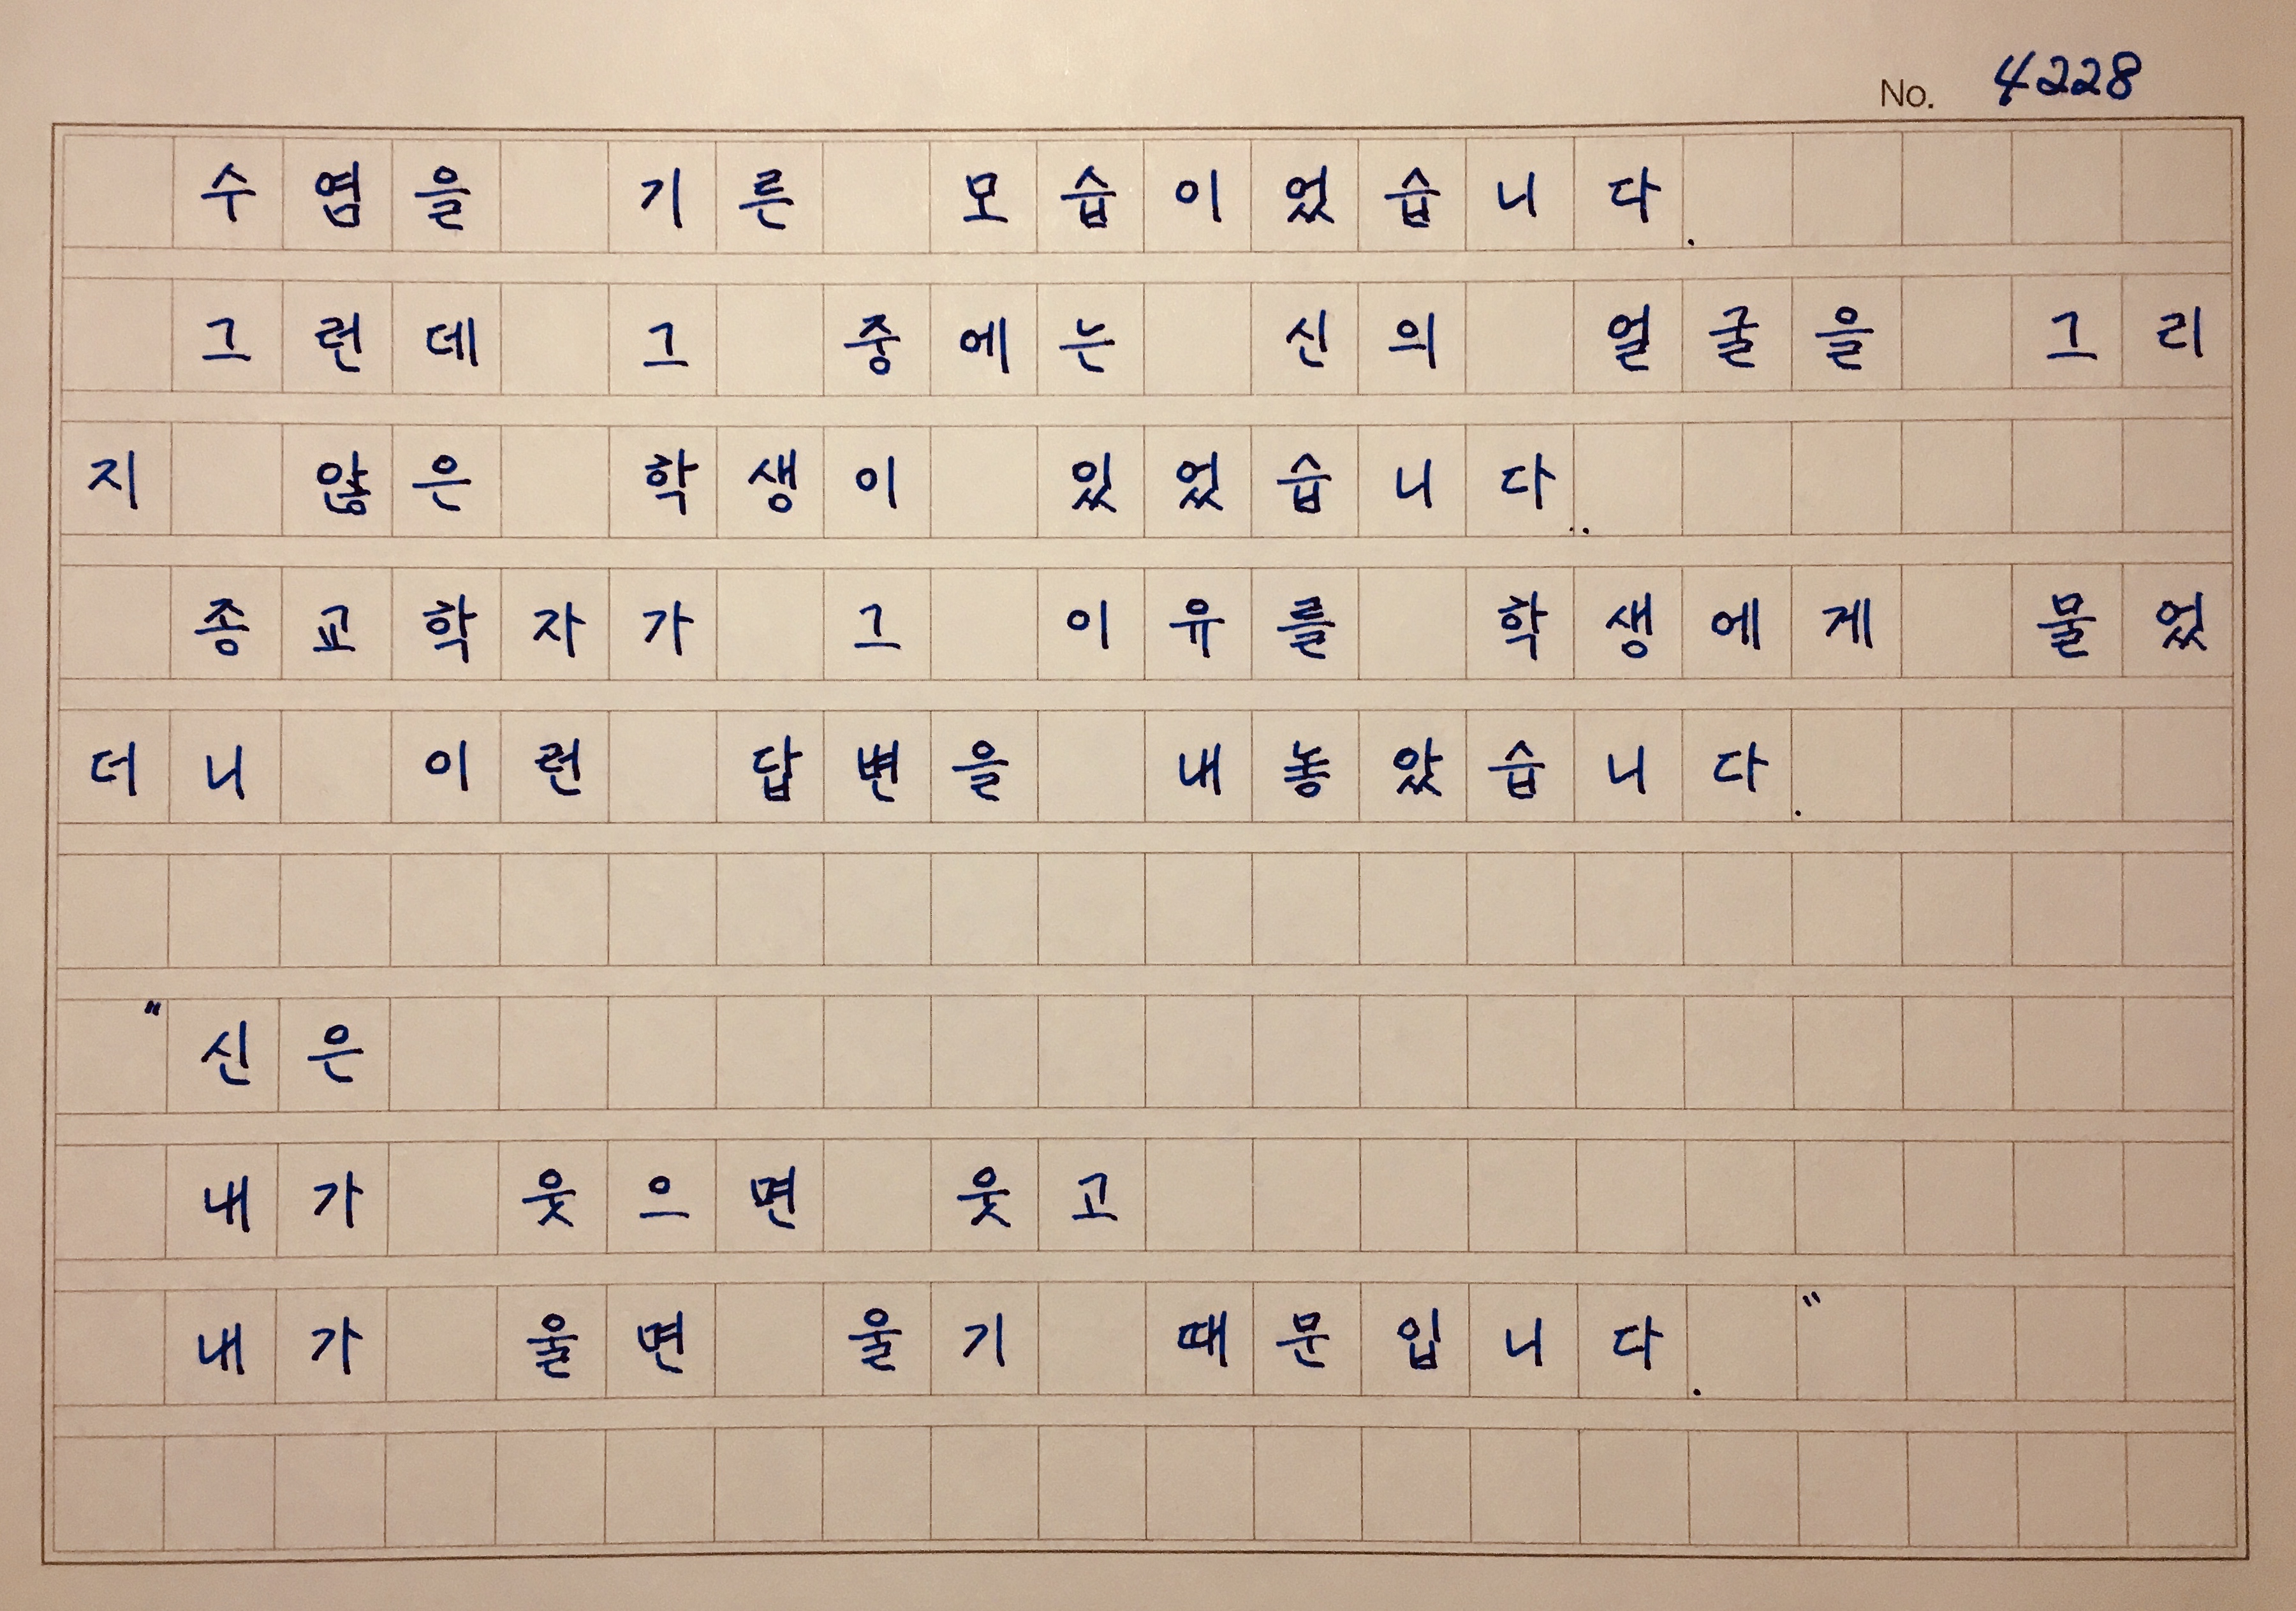 No. 4228
수염을 기른 모습이었습니다.
그런데 그 중에는 신의 얼굴을 그리
지 않은 학생이 있었습니다..
종교학자가 그 이유를 학생에게 물었
더니 이런 답변을 내놓았습니다.
"신은
내가 웃으면 웃고
내가 울면 울기 때문입니다."